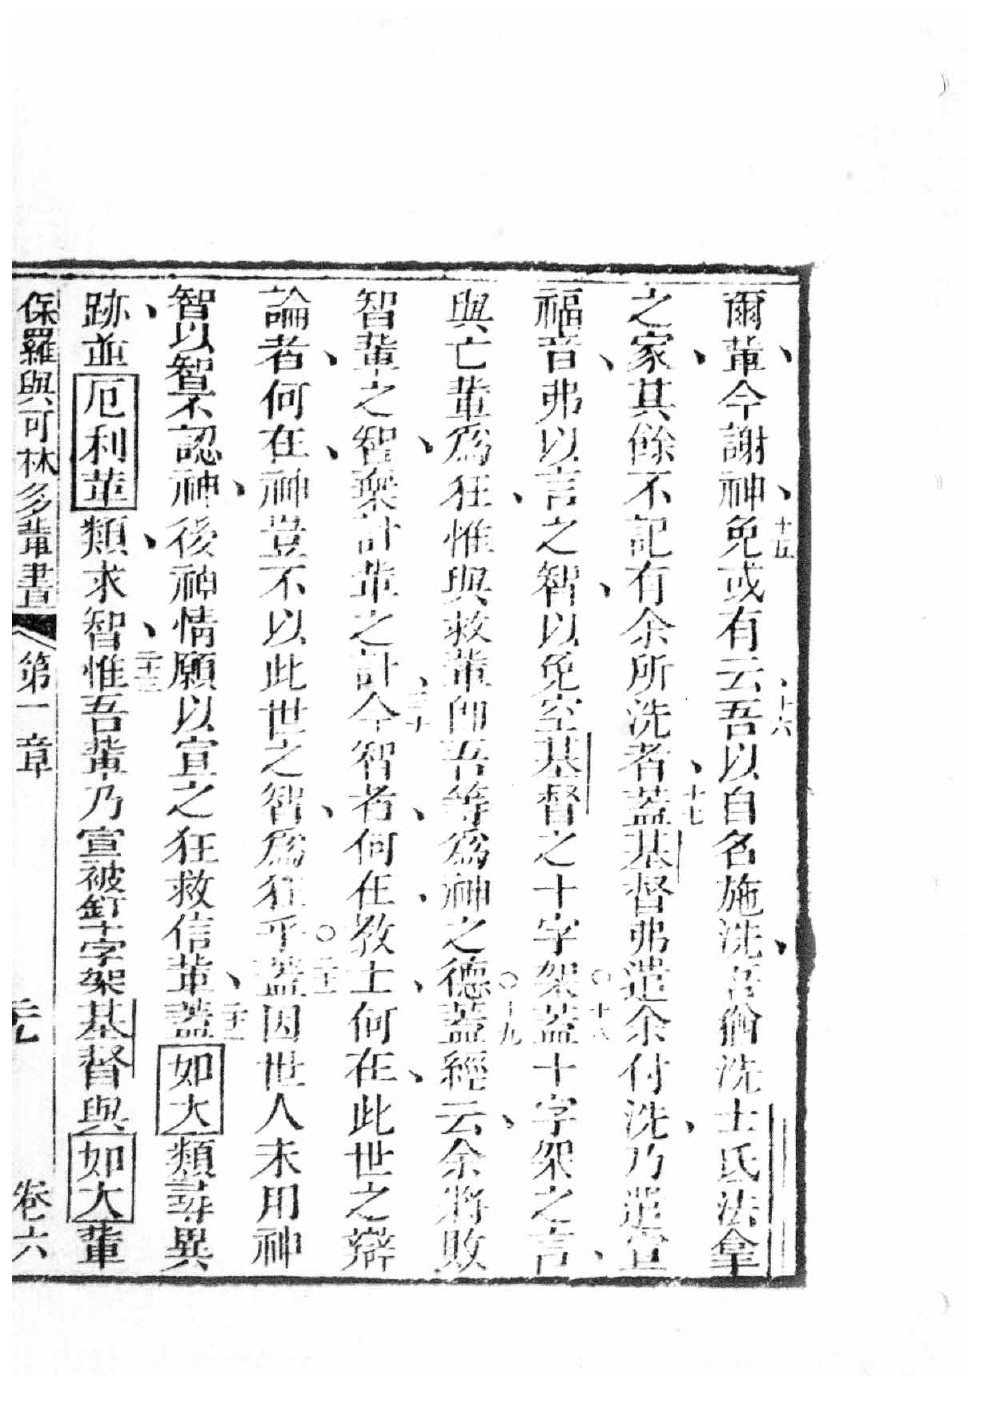 爾輩今謝神免或有云吾以自名施洗吾猶洗士氐法拿
十五
十六
之家其餘不記有余所洗者蓋基督弗遣余付洗乃遣宣
十七
福音弗以言之智以免空基督之十字架蓋十字架之言
十八
與亡輩為狂惟與救輩即吾等為神之德蓋經云余將敗
十九
智輩之智棄計輩之計今智者何在教士何在此世之辯
二十
論者何在神豈不以此世之智為狂乎蓋因世人未用神
二十一
智以智不認神後神情願以宣之狂救信輩蓋如大類尋異
二十二
跡並厄利輩類求智惟吾輩乃宣被釘十字架基督與如大輩
二十三
保羅與可林多輩書 第一章 卷六